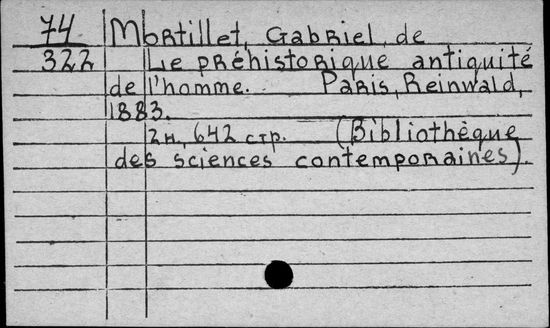 74 Mortillet, Gabriel de
322 Le préhistorique antiquité
de l'homme. Paris, Reinwald,
1883.
2н, 642 стр. (Bibliothèque
des sciences contemporaines).